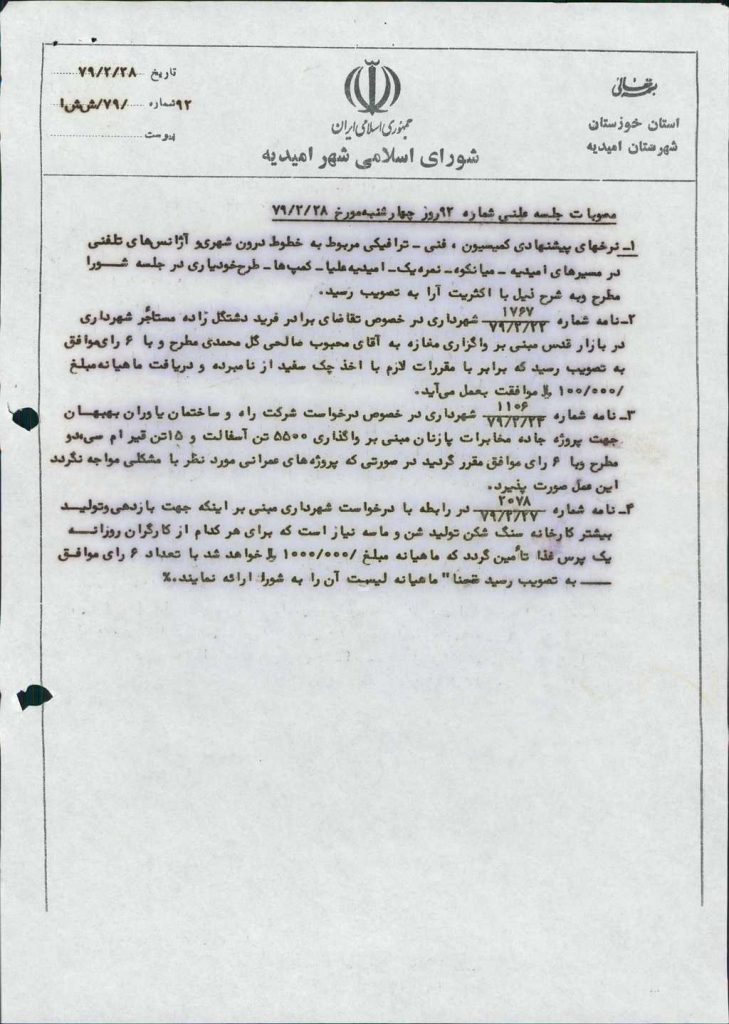 بسمه تعالی
استان خوزستان
شهرستان امیدیه
جمهوری اسلامی ایران
شورای اسلامی شهر امیدیه
تاریخ ۷۹/۲/۲۸
شماره ۹۲/۷۹/ش ش ا
پیوست
مصوبات جلسه علنی شماره ۹۲ روز چهارشنبه مورخ ۷۹/۲/۲۸
۱ـ نرخهای پیشنهادی کمیسیون ، فنی ـ ترافیکی مربوط به خطوط درون شهری و آژانس‌های تلفنی
در مسیرهای امیدیه ـ میانکوه ـ نمره یک ـ امیدیه علیا ـ کمپ‌ها ـ طرح خودیاری در جلسه شورا
مطرح وبه شرح ذیل با اکثریت آرا به تصویب رسید.
۲ـ نامه شماره ۱۷۶۷ / ۷۹/۲/۲۲ شهرداری در خصوص تقاضای برادر فرید دشتگل زاده مستأجر شهرداری
در بازار قدس مبنی بر واگزاری مغازه به آقای محبوب صالحی گل محمدی مطرح و با ۶ رای موافق
به تصویب رسید که برابر با مقررات لازم با اخذ چک سفید از نامبرده و دریافت ماهیانه مبلغ
۱۰۰/۰۰۰/ ریال موافقت بعمل می‌آید.
۳ـ نامه شماره ۱۱۰۶ / ۷۹/۲/۲۲ شهرداری در خصوص درخواست شرکت راه و ساختمان یاوران بهبهان
جهت پروژه جاده مخابرات پازنان مبنی بر واگذاری ۵۵۰۰ تن آسفالت و ۱۵ تن قیر ام سی،دو
مطرح وبا ۶ رای موافق مقرر گردید در صورتی که پروژه‌های عمرانی مورد نظر با مشکلی مواجه نگردد
این عمل صورت پذیرد.
۴ـ نامه شماره ۲۰۷۸ / ۷۹/۲/۲۷ در رابطه با درخواست شهرداری مبنی بر اینکه جهت بازدهی وتولید
بیشتر کارخانه سنگ شکن تولید شن و ماسه نیاز است که برای هر کدام از کارگران روزانه
یک پرس غذا تأمین گردد که ماهیانه مبلغ ۱۰۰۰/۰۰۰/ ریال خواهد شد با تعداد ۶ رای موافق
به تصویب رسید ضمنا" ماهیانه لیست آن را به شورا ارائه نمایند.%